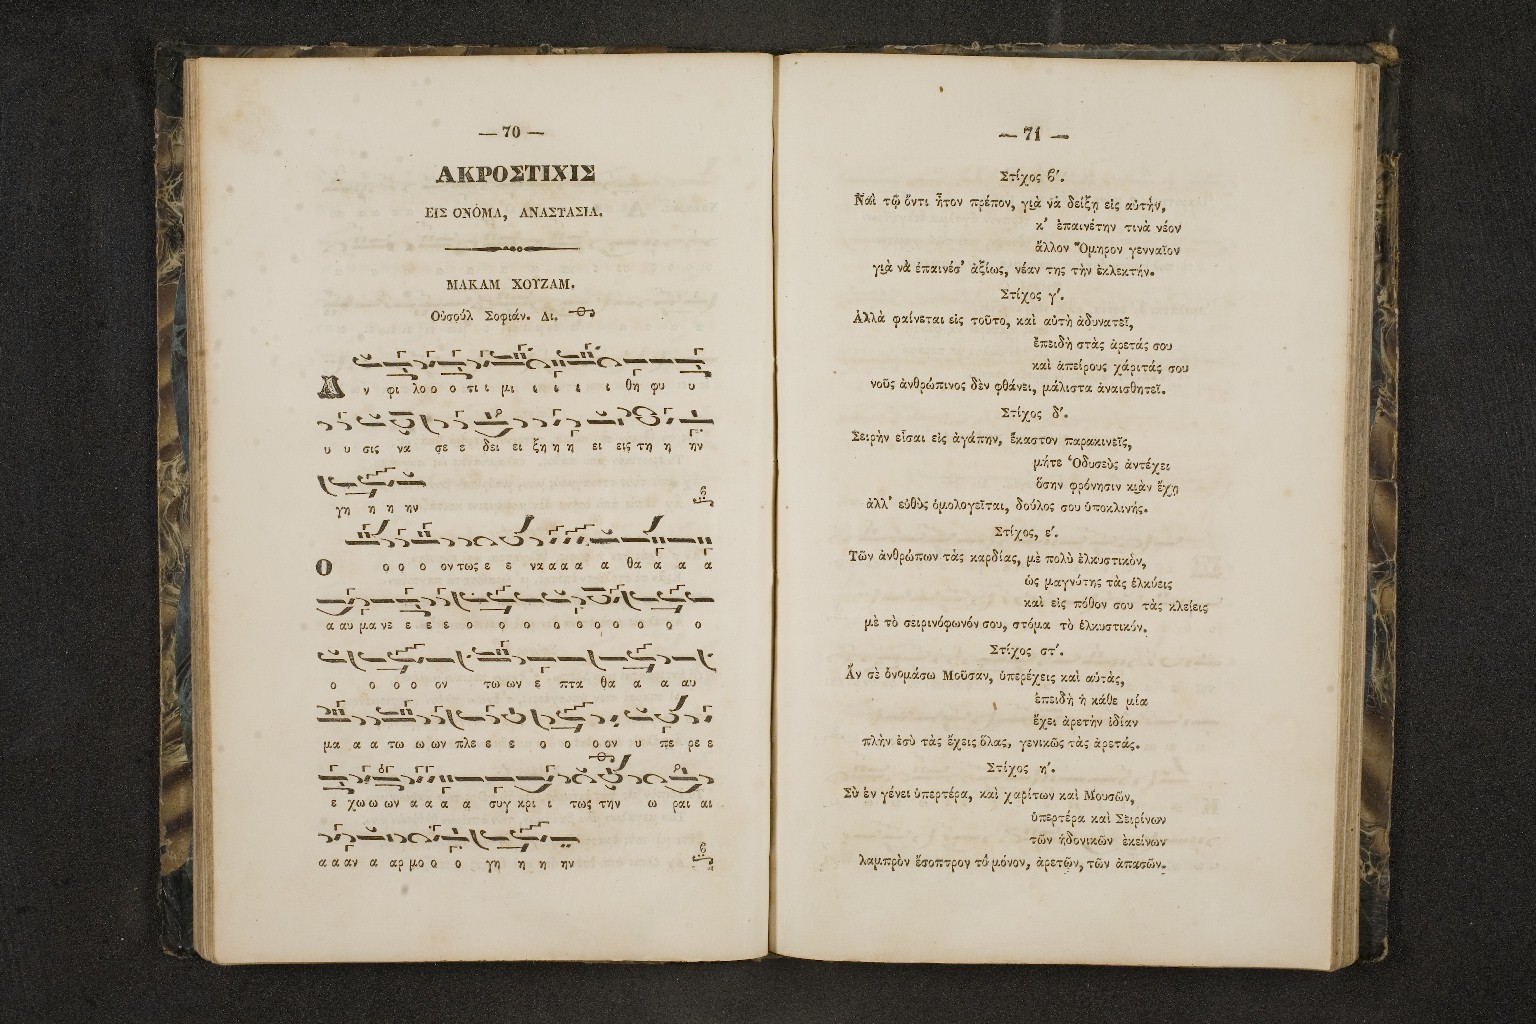 — 70 —
ΑΚΡΟΣΤΙΧΙΣ
ΕΙΣ ΟΝΟΜΑ, ΑΝΑΣΤΑΣΙΑ.
ΜΑΚΑΜ ΧΟΥΖΑΜ.
Οὐσοὺλ Σοφιάν. Δι.
Α ν φι λο ο ο τι ι μι ι ι ι ι θη φυ υ
υ υ σις να σε ε δει ει ξη η η ει εις τη η ην
γη η η ην
Ο ο ο ο ον τως ε ε να α α α α θα α α α
α αυ μα νε ε ε ε ο ο ο ο ο ο ο ο ο ο
ο ο ο ο ον τω ων ε πτα θα α α αυ
μα α α τω ω ων πλε ε ε ο ο ο ον υ πε ρε ε
ε χω ω ων α α α α συγ κρι ι τως την ω ραι αι
α α αν α αρ μο ο ο γη η η ην
— 71 —
Στίχος β'.
Ναὶ τῷ ὄντι ἦτον πρέπον, γιὰ νὰ δείξῃ εἰς αὐτὴν,
κ' ἐπαινέτην τινὰ νέον
ἄλλον Ὅμηρον γενναῖον
γιὰ νὰ ἐπαινέσ' ἀξίως, νέαν της τὴν ἐκλεκτήν.
Στίχος γ'.
Ἀλλὰ φαίνεται εἰς τοῦτο, καὶ αὐτὴ ἀδυνατεῖ,
ἐπειδὴ στὰς ἀρετάς σου
καὶ ἀπείρους χάριτάς σου
νοῦς ἀνθρώπινος δὲν φθάνει, μάλιστα ἀναισθητεῖ.
Στίχος δ'.
Σειρὴν εἶσαι εἰς ἀγάπην, ἕκαστον παρακινεῖς,
μήτε Ὀδυσεὺς ἀντέχει
ὅσην φρόνησιν κιὰν ἔχῃ
ἀλλ' εὐθὺς ὁμολογεῖται, δούλος σου ὑποκλινής.
Στίχος, ε'.
Τῶν ἀνθρώπων τὰς καρδίας, μὲ πολὺ ἑλκυστικὸν,
ὡς μαγνύτης τὰς ἑλκύεις
καὶ εἰς πόθον σου τὰς κλείεις
μὲ τὸ σειρινόφωνόν σου, στόμα τὸ ἑλκυστικόν.
Στίχος στ'.
Ἂν σὲ ὀνομάσω Μοῦσαν, ὑπερέχεις καὶ αὐτὰς,
ἐπειδὴ ἡ κάθε μία
ἔχει ἀρετὴν ἰδίαν
πλὴν ἐσὺ τὰς ἔχεις ὅλας, γενικῶς τὰς ἀρετάς.
Στίχος η'.
Σὺ ἐν γένει ὑπερτέρα, καὶ χαρίτων καὶ Μουσῶν,
ὑπερτέρα καὶ Σειρίνων
τῶν ἡδονικῶν ἐκείνων
λαμπρὸν ἔσοπτρον τὸ μόνον, ἀρετῶν, τῶν ἁπασῶν.